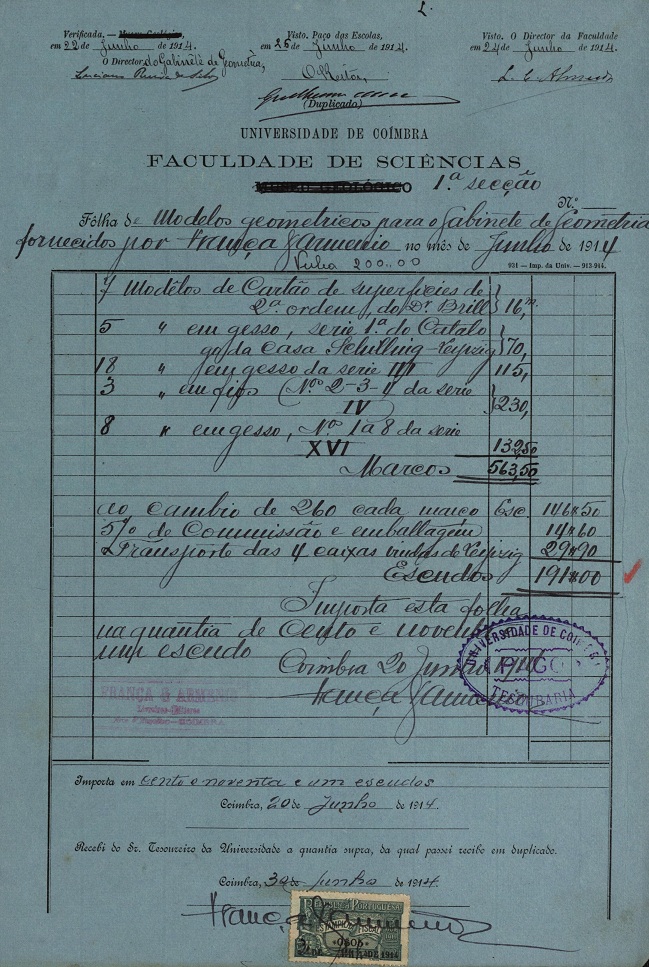 Verificada. — Museu Geológico,
em 22 de Junho de 1914
O Director do Gabinête de Geometria,
Visto. Paço das Escolas,
em 25 de Junho de 1914.
O Reitor,
(Duplicado)
Visto. O Director da Faculdade
em 24 de Junho de 1914
UNIVERSIDADE DE COÍMBRA
FACULDADE DE SCIÊNCIAS
MUSEU GEOLÓGICO 1.ª secção
N.º
Fôlha de Modelos geometricos para o Gabinete de Geometria
fornecidos por França & Armenio no mês de Junho de 1914
200..00
931 — Imp. da Univ. — 913-914.
7 Modêlos de Cartão de superficies de
2.ª ordem, do Dr. Brill 16,
5 " em gesso, serie 1.ª do Catalo
go da casa Schilling-Leipzig 70,
18 " em gesso da serie III 115,
3 " em fios (Nos 2-3-4 da serie
IV) 230,
8 " em gesso, Nos 1 a 8 da serie
XVI 132,50
Marcos 563,50
ao cambio de 260 cada março Esc. 146$50
5% de Commissão e emballagem 14$60
Transporte das 4 caixas vindas de Leipzig 29$90
Escudos 191$00
Importa esta folha
na quantia de Cento e noventa e
um escudo
Coimbra 20 Junho
França & Armenio
UNIVERSIDADE DE COIMBRA
PAGO
TESOURARIA
FRANÇA & ARMENIO
COIMBRA
Importa em cento e noventa e um escudos
Coimbra, 20 de Junho de 1914.
Recebi do Sr. Tesoureiro da Universidade a quantia supra, da qual passei recibo em duplicado.
Coimbra, 30 de Junho de 1914.
REPUBLICA PORTUGUESA
ESTAMPILHA FISCAL
França & Armenio